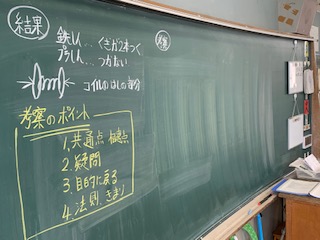 結果
鉄しん…くぎが2本つく
プラしん…つかない
コイルのはしの部分
考察
考察のポイント
1.共通点 相違点
2.疑問
3.目的に戻る
4.法則、きまり